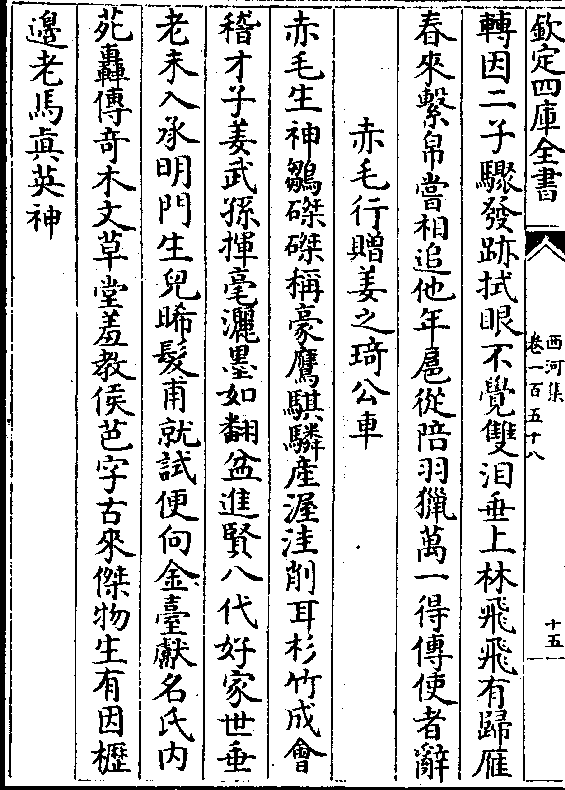 欽定四庫全書
西河集
卷一百五十八
十五
轉因二子驟發跡拭眼不覺雙泪垂上林飛飛有歸雁
春來繫帛當相追他年扈從陪羽獵萬一得傳使者辭
赤毛行贈姜之琦公車
赤毛生神鶵磔磔稱豪鷹騏驎産渥洼削耳杉竹成會
稽才子姜武孫揮毫灑墨如翻盆進賢八代好家世垂
老未入承明門生兒晞髮甫就試便向金臺獻名氏内
苑轟傳奇木文草堂羞教侯芭字古來傑物生有因櫪
邊老馬真英神